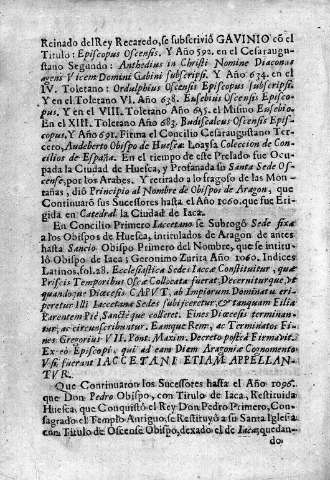 Reinado del Rey Recaredo, se subscrivió GAVINIO cō el
Titulo: Episcopus Oscensis. Y Año 592. en el Cesaraugus-
tano Segundo: Anthedius in Christi Nomine Diaconus
agens Vicem Domini Gabini subscripsi. Y Año 634. en el
IV. Toletano: Ordulphius Oscensis Episcopus subscripsi.
Y en el Toletano VI. Año 638. Eusebius Oscensis Episco-
pus. Y en el VIII. Toletano Año 645. el Mismo Eusebio.
En el XIII. Toletano Año 683. Budiscalcus Oscensis Epis-
copus. Y Año 691. Firma el Concilio Cesaraugustano Ter-
cero, Audeberto Obispo de Huesca: Loaysa Coleccion de Con-
cilios de España. En el tiempo de este Prelado fue Ocu-
pada la Ciudad de Huesca, y Profanada su Santa Sede Os-
cense, por los Arabes. Y retirado a lo fragoso de las Mon-
tañas, dió Principio al Nombre de Obispos de Aragon, que
Continuarō sus Sucessores hasta el Año 1060. que fue Eri-
gida en Catedral la Ciudad de Iaca.
En Concilio Primero Iaccetano se Subrogò Sede fixa
a los Obispos de Huesca, intitulados de Aragon de antes
hasta Sancio Obispo Primero del Nombre, que se intitu-
ló Obispo de Iaca; Geronimo Zurita Año 1060. Indices
Latinos, fol. 28. Ecclesiastica Sedes Iacca Constituitur, quæ
Priscis Temporibus Osca Collocata fuerat. Decerniturque, vt
quandoque Diæcesis CAPVT, ab Impiorum Dominatu eri-
peretur Illi Iaccetana Sedes subijceretur, & tanquam Filia
Parentem Piè, Sanctè que colleret. Fines Diæcesis terminan-
tur, ac circunscribuntur. Eamque Rem, ac Terminatos Fi-
nes Gregorius VII. Pont. Maxim. Decreto posteà Firmavit.
Ex eo Episcopi, qui ad eam Diem Aragoniæ Cognomento
Vsi fuerant IACCETANI ETIAM APPELLAN-
TVR.
Que Continuaron los Sucessores hasta el Año 1096.
que Don Pedro Obispo, con Titulo de Iaca, Restituida
Huesca, que Conquistó el Rey Don Pedro Primero, Con-
sagrado el Templo Antiguo, se Restituyò a su Santa Iglesia
con Titulo de Oscense Obispo, dexado el de Iaca, quedan-
do